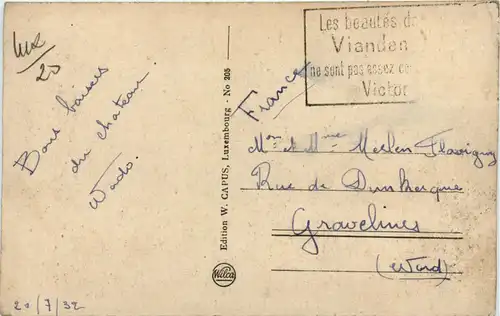 Lux
20
Bons baisers
du chateau
Wado.
20/7/32
Edition W. CAPUS, Luxembourg - No 205
Wilca
Les beautés d
Vianden
ne sont pas assez co
Victor
France
Mon & Mme Merlen Flavigny
Rue de Dunkerque
Gravelines
(Word)